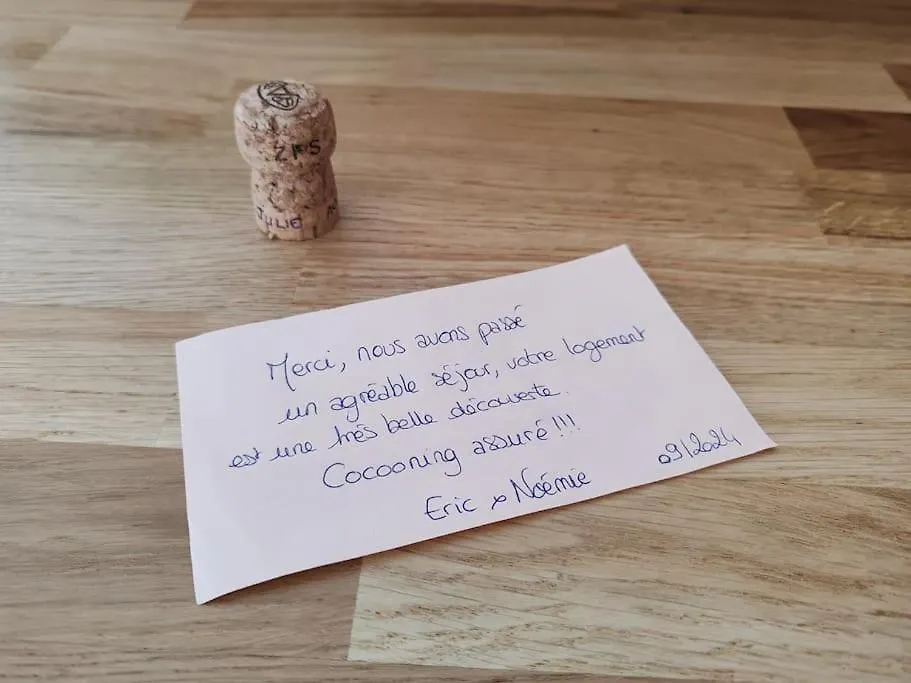 JULIE
Merci, nous avons passé
un agréable séjour, votre logement
est une très belle découverte.
Cocooning assuré !!!
Eric & Noémie
09/2024